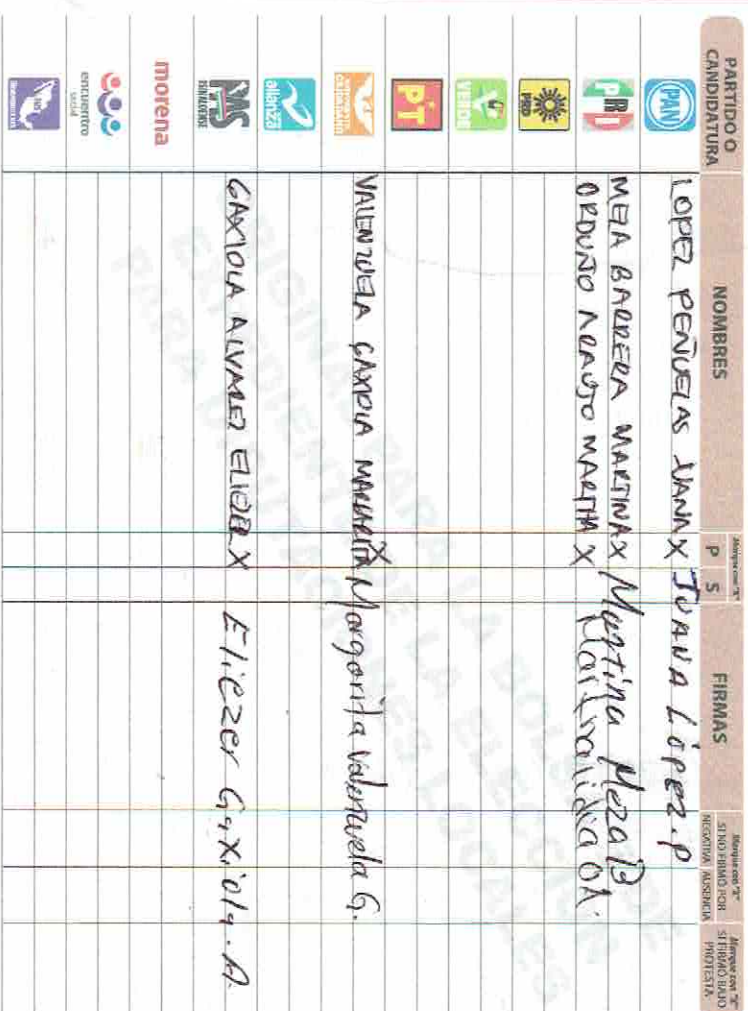 PARTIDO O CANDIDATURA NOMBRES Marque con "X" P S FIRMAS Marque con "X" SI NO FIRMÓ POR NEGATIVA AUSENCIA Marque con "X" SI FIRMÓ BAJO PROTESTA
PAN LOPEZ PEÑUELAS JUANA X JUANA LÓPEZ.P
PRI MEZA BARRERA MARTINA X Martina Meza B
ORDUÑO ARAUJO MARTHA X OA.
PRD
VERDE
PT
MOVIMIENTO CIUDADANO VALENZUELA GAXIOLA MARGARITA X Margarita Valenzuela G.
alianza
PAS SINALOENSE GAXIOLA ALVAREZ ELIEZER X Eliezer Gaxiola.A.
morena
encuentro social
ORIGINAL PARA LA BOLSA DE
EXPEDIENTE DE LA ELECCIÓN
PARA DIPUTACIONES LOCALES